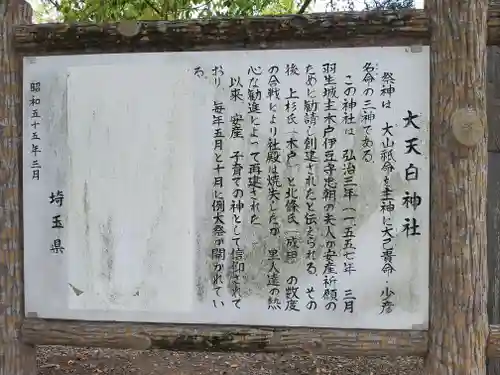 大天白神社
祭神は、大山祇命を主神に大己貴命・少彦
名命の三神である。
この神社は、弘治三年（一五五七年）三月
羽生城主木戸伊豆守忠朝の夫人が安産祈願の
ために勧請し創建されたと伝えられる。その
後、上杉氏（木戸）と北條氏（成田）の数度
の合戦により社殿は焼失したが、里人達の熱
心な勧進によって再建された。
以来、安産、子育ての神として信仰されて
おり、毎年五月と十月に例大祭が開かれてい
る。
昭和五十五年三月
埼玉県